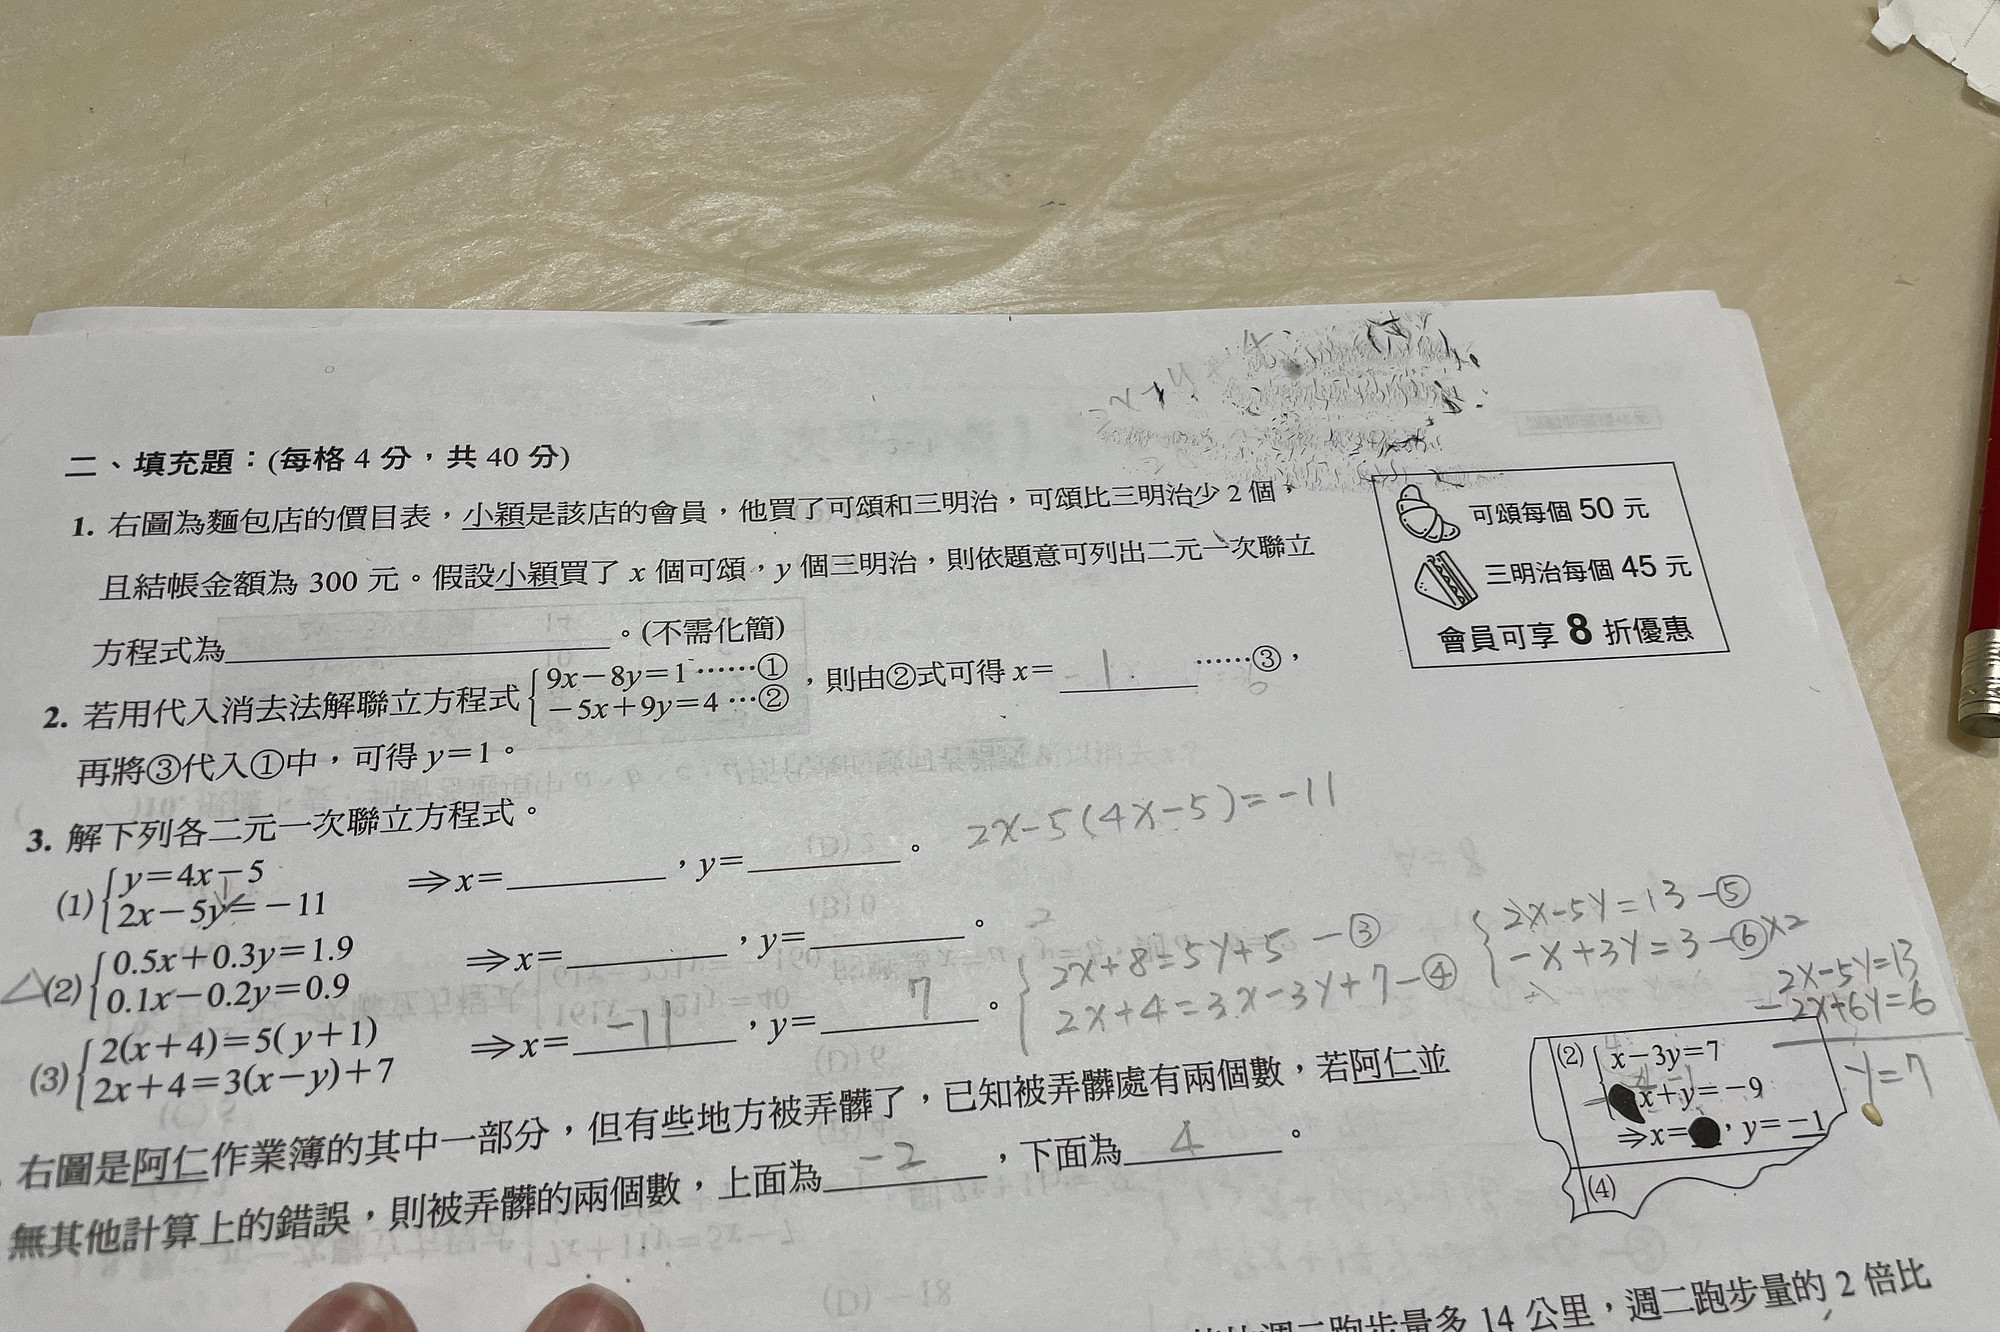 二、填充題：(每格 4 分，共 40 分)
1. 右圖為麵包店的價目表，小穎是該店的會員，他買了可頌和三明治，可頌比三明治少 2 個，
且結帳金額為 300 元。假設小穎買了 x 個可頌，y 個三明治，則依題意可列出二元一次聯立
方程式為＿＿＿＿＿＿。(不需化簡)
可頌每個 50 元
三明治每個 45 元
會員可享 8 折優惠
2. 若用代入消去法解聯立方程式 { 9x－8y＝1 ……①
－5x＋9y＝4 …②
，則由②式可得 x＝ -1 ……③，
再將③代入①中，可得 y＝1。
3. 解下列各二元一次聯立方程式。
2x-5(4x-5)=-11
(1) { y＝4x－5
2x－5y＝－11
⇒x＝＿＿＿，y＝＿＿＿。
△(2) { 0.5x＋0.3y＝1.9
0.1x－0.2y＝0.9
⇒x＝＿＿＿，y＝＿＿＿。
(3) { 2(x＋4)＝5(y＋1)
2x＋4＝3(x－y)＋7
⇒x＝ -11 ，y＝ 7 。
{ 2x+8=5y+5 -③
2x+4=3x-3y+7-④
{ 2x-5y=13-⑤
-x+3y=3-⑥x2
2x-5y=13
-2x+6y=6
y=7
右圖是阿仁作業簿的其中一部分，但有些地方被弄髒了，已知被弄髒處有兩個數，若阿仁並
無其他計算上的錯誤，則被弄髒的兩個數，上面為 -2 ，下面為 4 。
(2) { x－3y＝7
x＋y＝－9
⇒x＝ ，y＝－1
(4)
跑步量多 14 公里，週二跑步量的 2 倍比